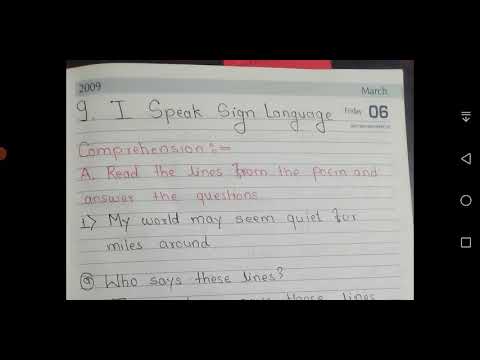 2009
March
Friday 06
9. I Speak Sign Language
Comprehension :-
A. Read the lines from the poem and
answer the questions
1) My world may seem quiet for
miles around
a Who says these lines?
these lines